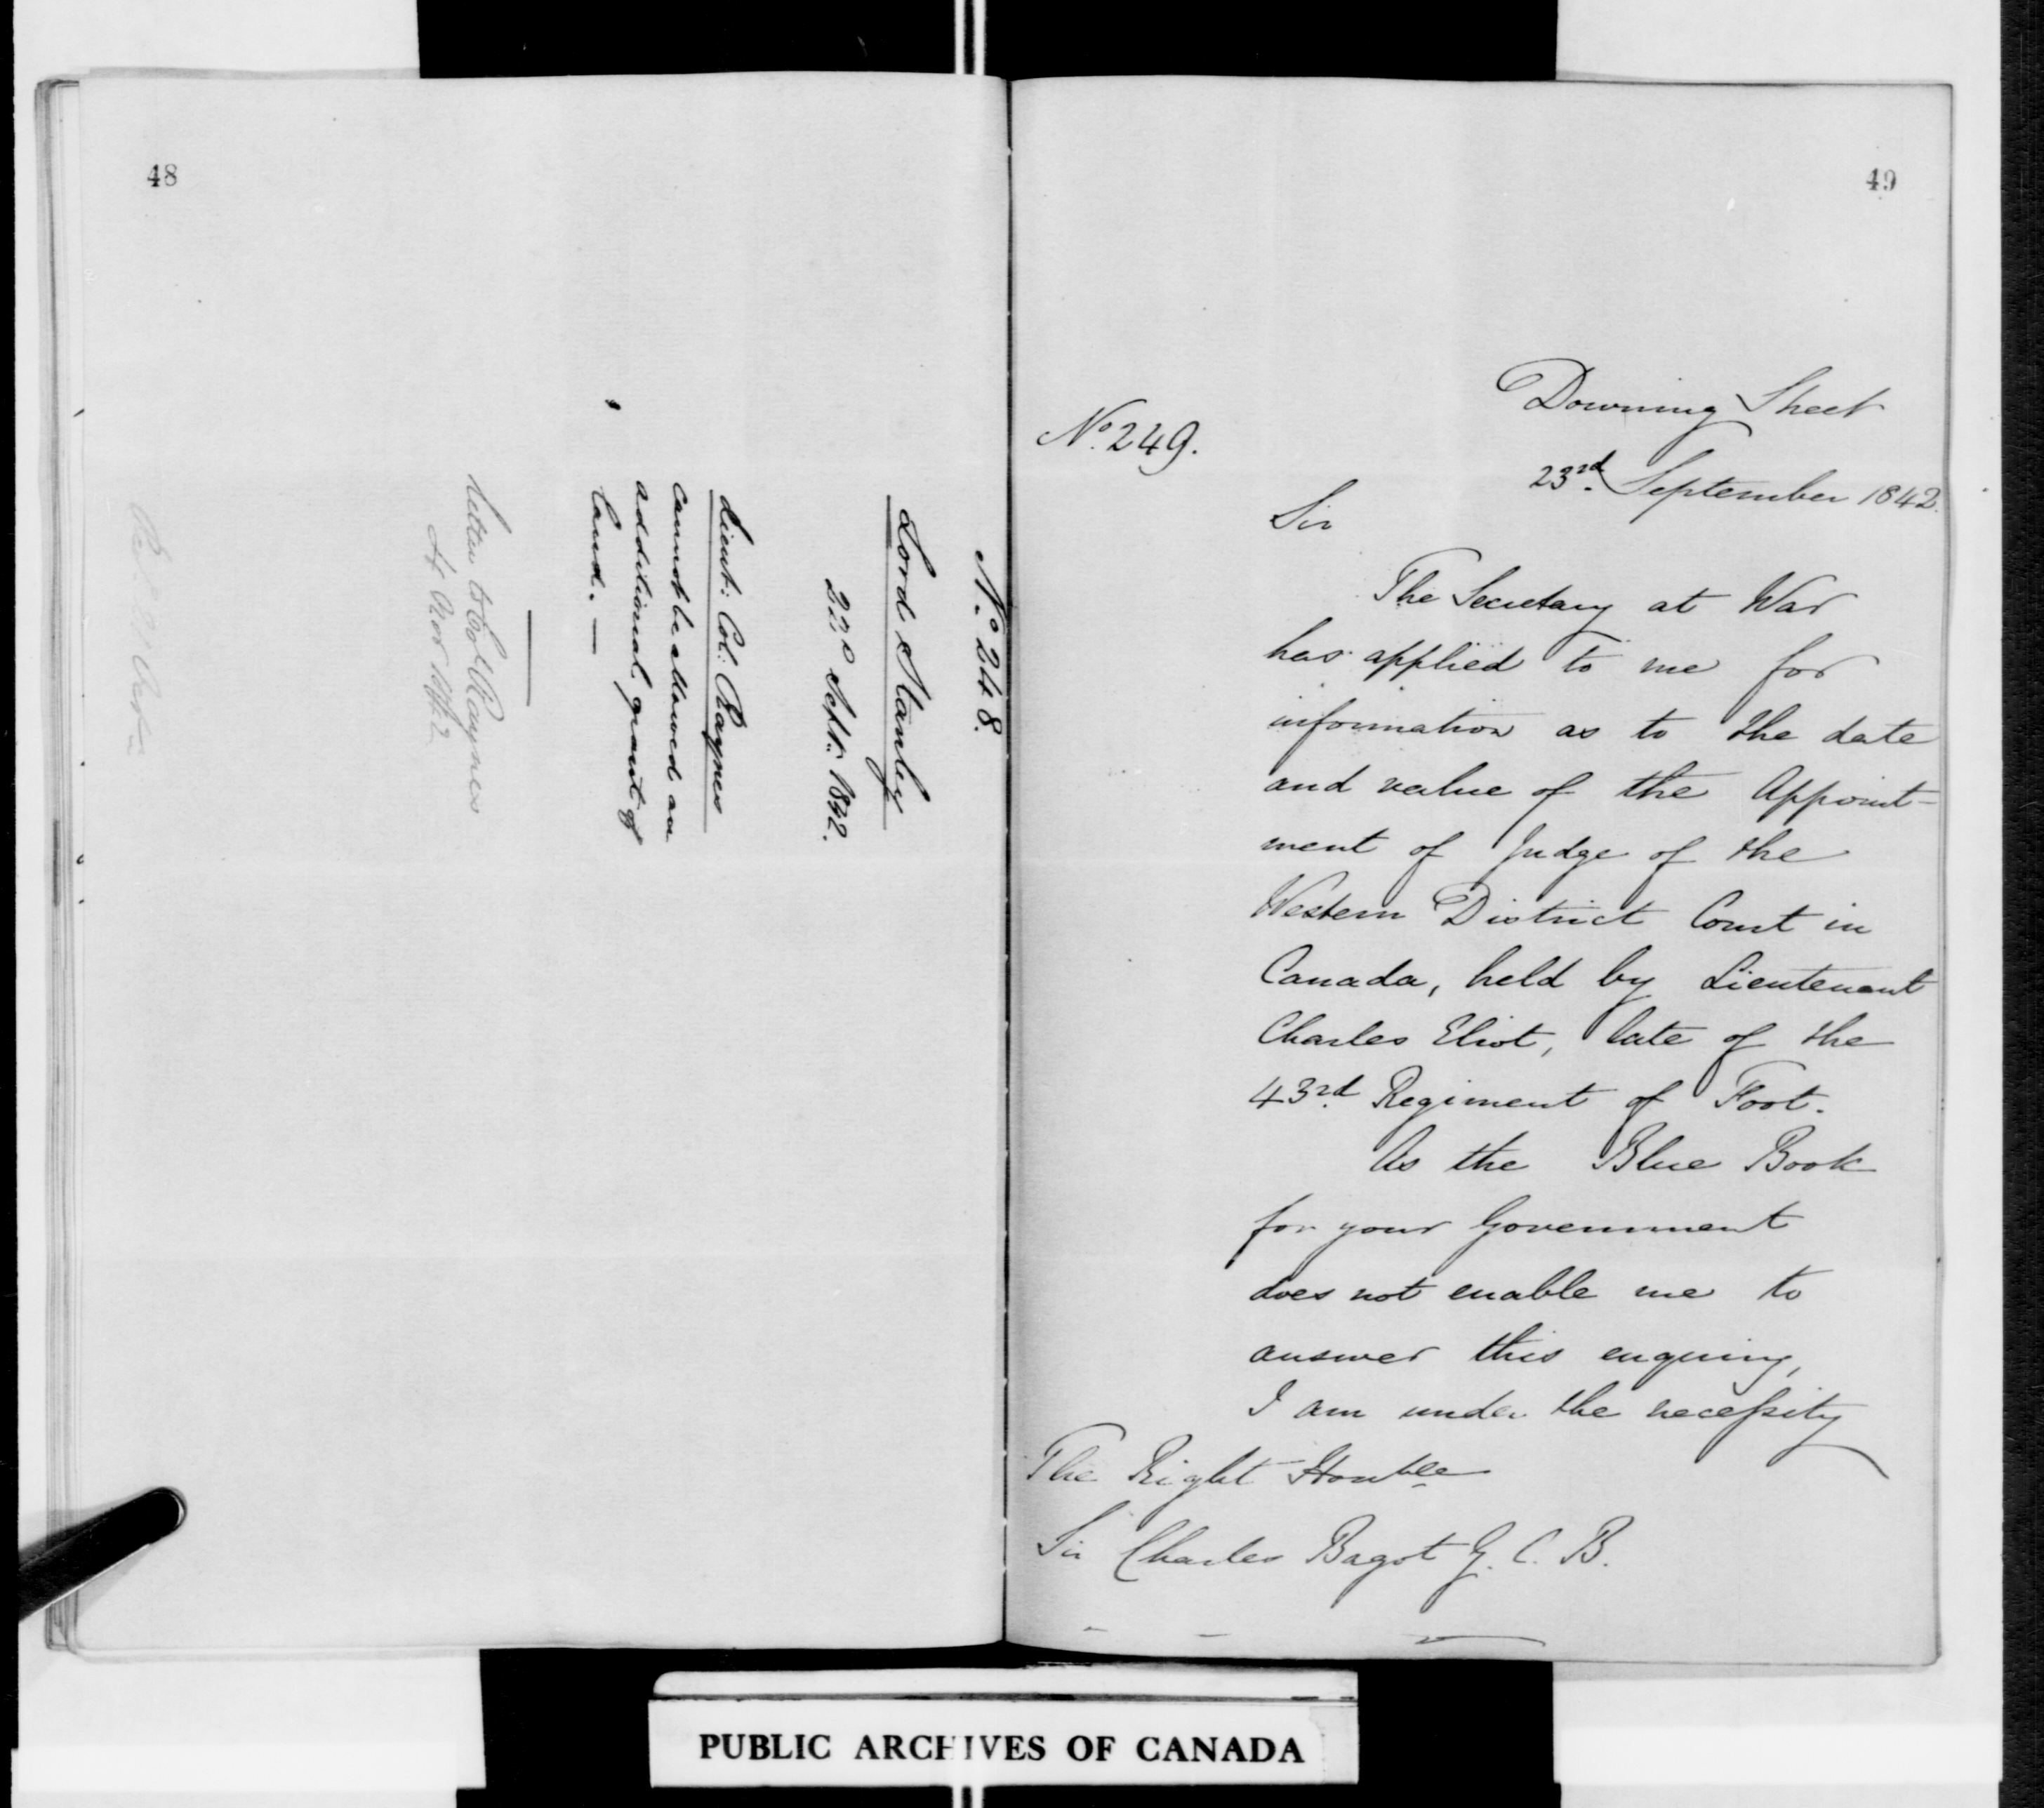 48
No. 248.
Lord Stanley
22d Sept: 1842.
Lieut: Col: Raynes
cannot be allowed an
additional grant of
land. —
Letter to Col Raynes
49
No. 249.
Downing Street
23rd. September 1842.
Sir
The Secretary at War
has applied to me for
information as to the date
and value of the Appoint-
ment of Judge of the
Western District Court in
Canada, held by Lieutenant
Charles Eliot, late of the
43rd Regiment of Foot.
As the Blue Book
for your Government
does not enable me to
answer this enquiry,
I am under the necessity
The Right Honble
Sir Charles Bagot G. C. B.
PUBLIC ARCHIVES OF CANADA